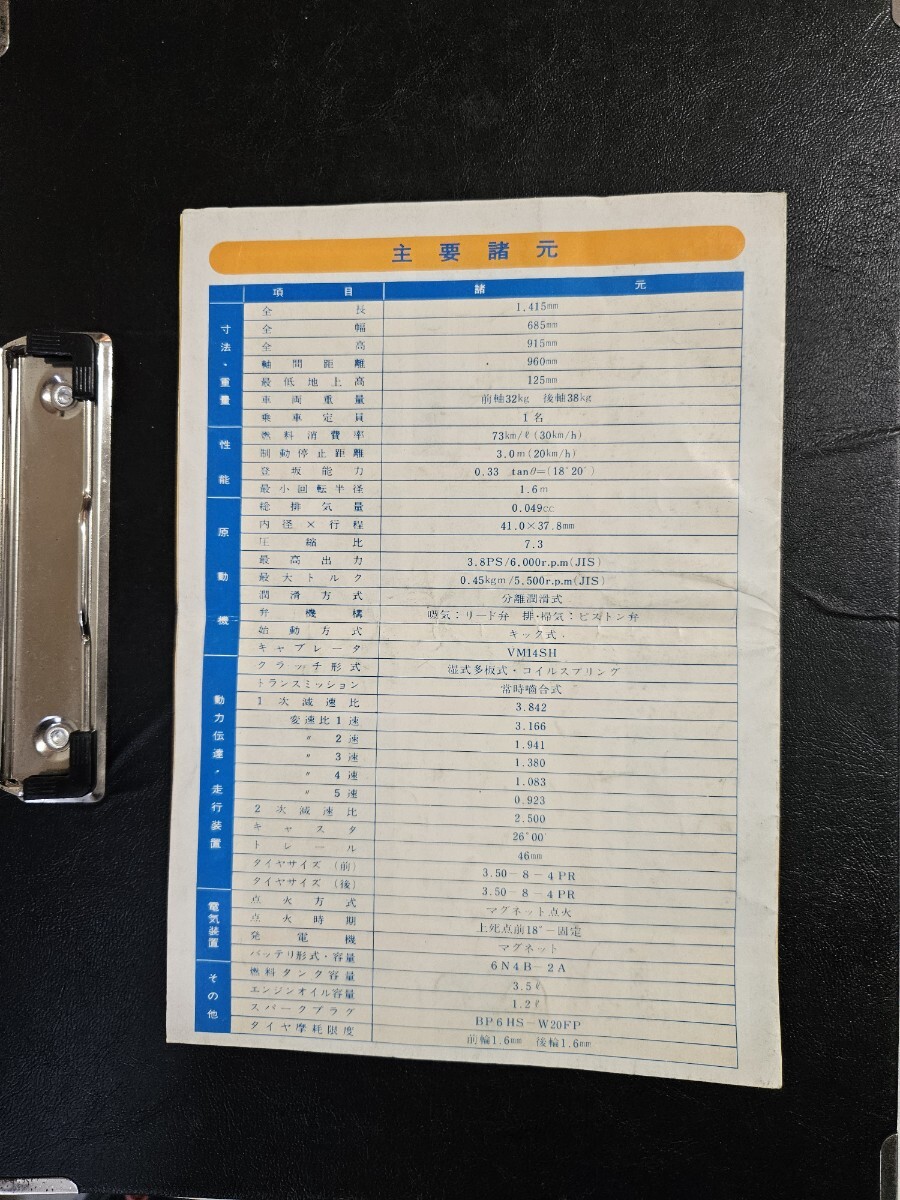 主要諸元
項目 諸元
寸法・重量
全長 1,415mm
全幅 685mm
全高 915mm
軸間距離 960mm
最低地上高 125mm
車両重量 前軸32kg 後軸38kg
乗車定員 1名
性能
燃料消費率 73km/ℓ(30km/h)
制動停止距離 3.0m(20km/h)
登坂能力 0.33 tanθ=(18°20′)
最小回転半径 1.6m
原動機
総排気量 0.049cc
内径×行程 41.0×37.8mm
圧縮比 7.3
最高出力 3.8PS/6,000r.p.m(JIS)
最大トルク 0.45kgm/5,500r.p.m(JIS)
潤滑方式 分離潤滑式
弁機構 吸気:リード弁 排・掃気:ピストン弁
始動方式 キック式
キャブレータ VM14SH
動力伝達・走行装置
クラッチ形式 湿式多板式・コイルスプリング
トランスミッション 常時噛合式
1次減速比 3.842
変速比1速 3.166
〃 2速 1.941
〃 3速 1.380
〃 4速 1.083
〃 5速 0.923
2次減速比 2.500
キャスタ 26°00′
トレール 46mm
タイヤサイズ(前) 3.50-8-4PR
タイヤサイズ(後) 3.50-8-4PR
電気装置
点火方式 マグネット点火
点火時期 上死点前18°-固定
発電機 マグネット
バッテリ形式・容量 6N4B-2A
その他
燃料タンク容量 3.5ℓ
エンジンオイル容量 1.2ℓ
スパークプラグ BP6HS-W20FP
タイヤ摩耗限度 前輪1.6mm 後輪1.6mm